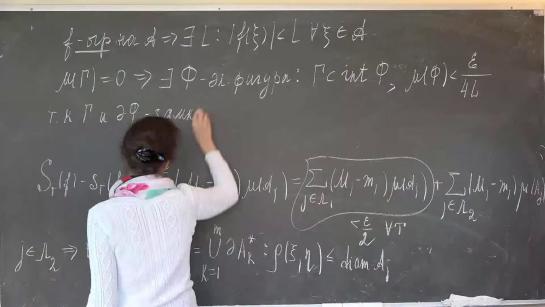 f-огр на A ⇒ ∃ L : |f(ξ)| < L ∀ ξ ∈ A.
μ(Γ) = 0 ⇒ ∃ Φ-эл. фигура: Γ ⊂ int Φ, μ(Φ) < ε/4L
т.к Γ и ∂Φ замк
S_τ(f) - s_τ M_i - m_i) μ(A_i) = ∑_{j∈Λ_1} (M_i - m_i) μ(A_i) + ∑_{j∈Λ_2} (M_i - m_i) μ(A
< ε/2 ∀τ
j ∈ Λ_2 ⇒ = ⋃_{k=1}^{m} ∂Π_k^* : ρ(ξ, η) ≤ diam A_j